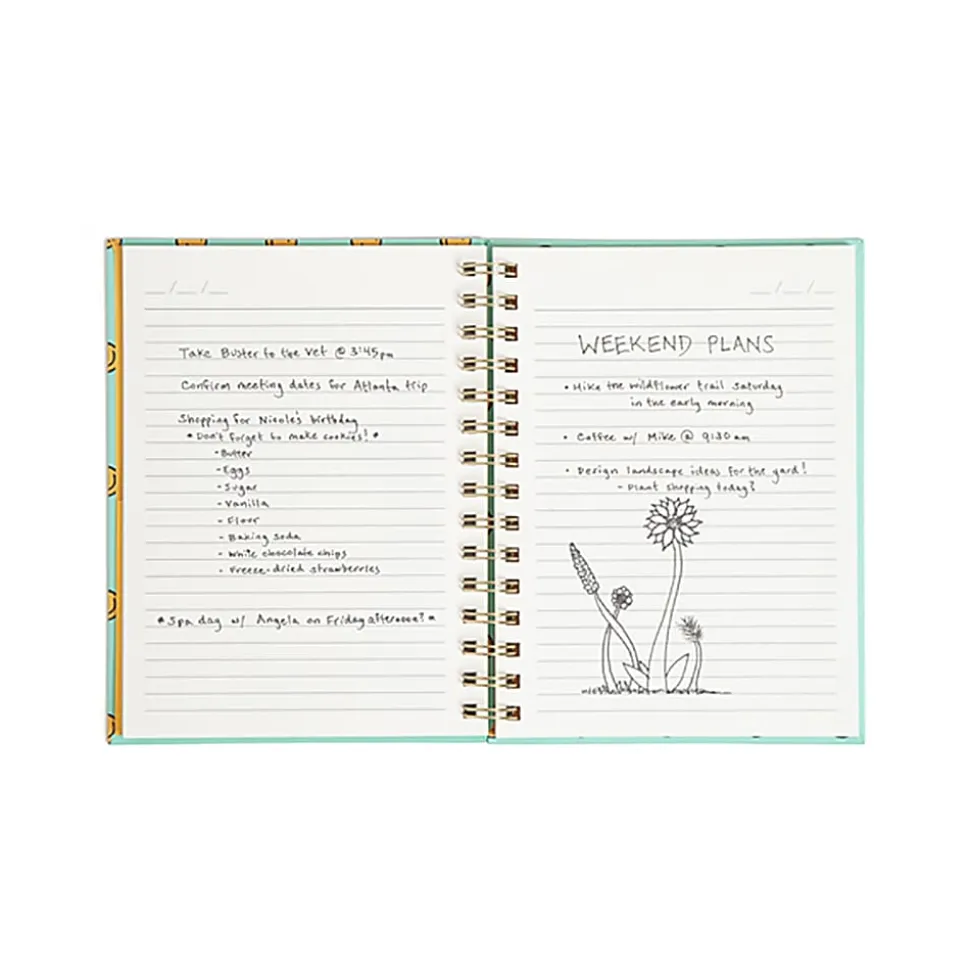 __/__/__
Take Buster to the vet @ 3:45pm
Confirm meeting dates for Atlanta trip
Shopping for Nicole's birthday
*Don't forget to make cookies! *
- Butter
- Eggs
- Sugar
- Vanilla
- Flour
- Baking soda
- White chocolate chips
- Freeze-dried strawberries
*Spa day w/ Angela on Friday afternoon? *
__/__/__
WEEKEND PLANS
• Hike the wildflower trail Saturday
in the early morning
• Coffee w/ Mike @ 9:30 am
• Design landscape ideas for the yard!
- Plant shopping today?